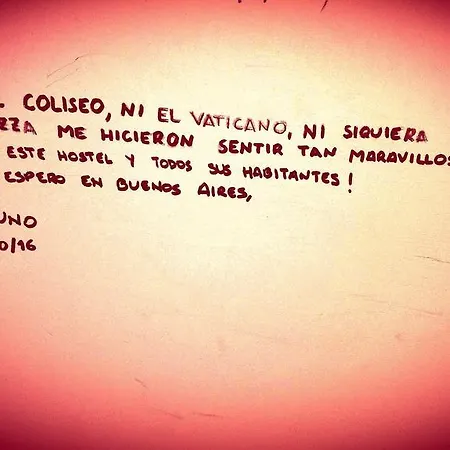 . COLISEO, NI EL VATICANO, NI SIQUIERA
ZZA ME HICIERON SENTIR TAN MARAVILLOS
ESTE HOSTEL Y TODOS SUS HABITANTES!
ESPERO EN BUENOS AIRES,
UNO
0/16